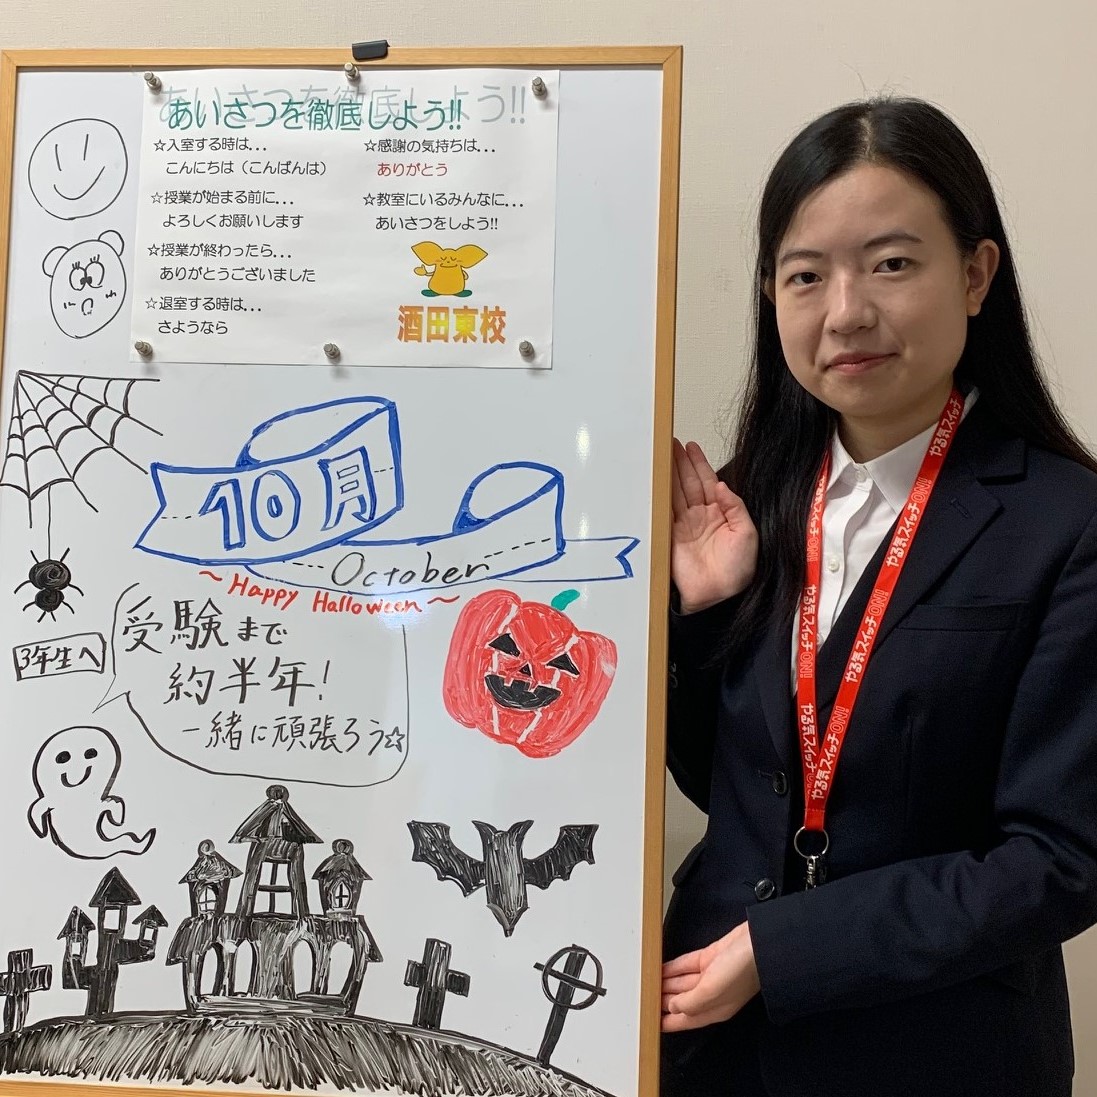 あいさつを徹底しよう!!
☆入室する時は...
こんにちは（こんばんは）
☆授業が始まる前に...
よろしくお願いします
☆授業が終わったら...
ありがとうございました
☆退室する時は...
さようなら
☆感謝の気持ちは...
ありがとう
☆教室にいるみんなに...
あいさつをしよう!!
酒田東校
10月
October
～Happy Halloween～
3年生へ
受験まで
約半年!
一緒に頑張ろう☆
やる気スイッチON!
やる気スイッチON!
やる気スイッチON!
やる気スイッチON!